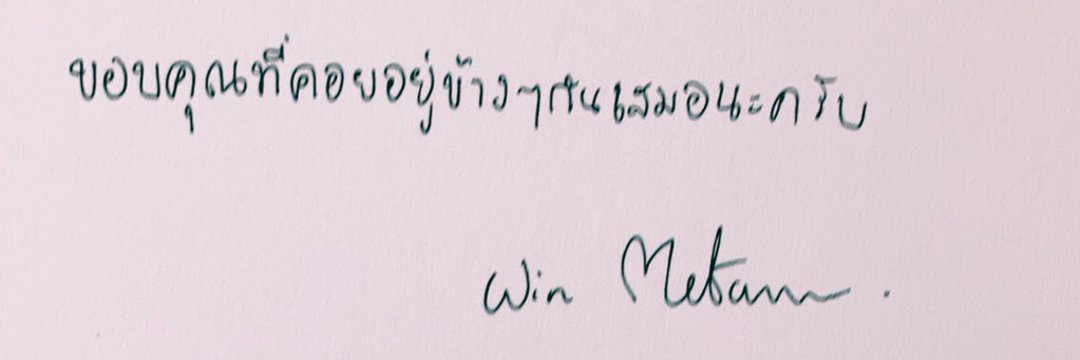 ขอบคุณที่คอยอยู่ข้างๆกันเสมอนะครับ
Win Metawin.